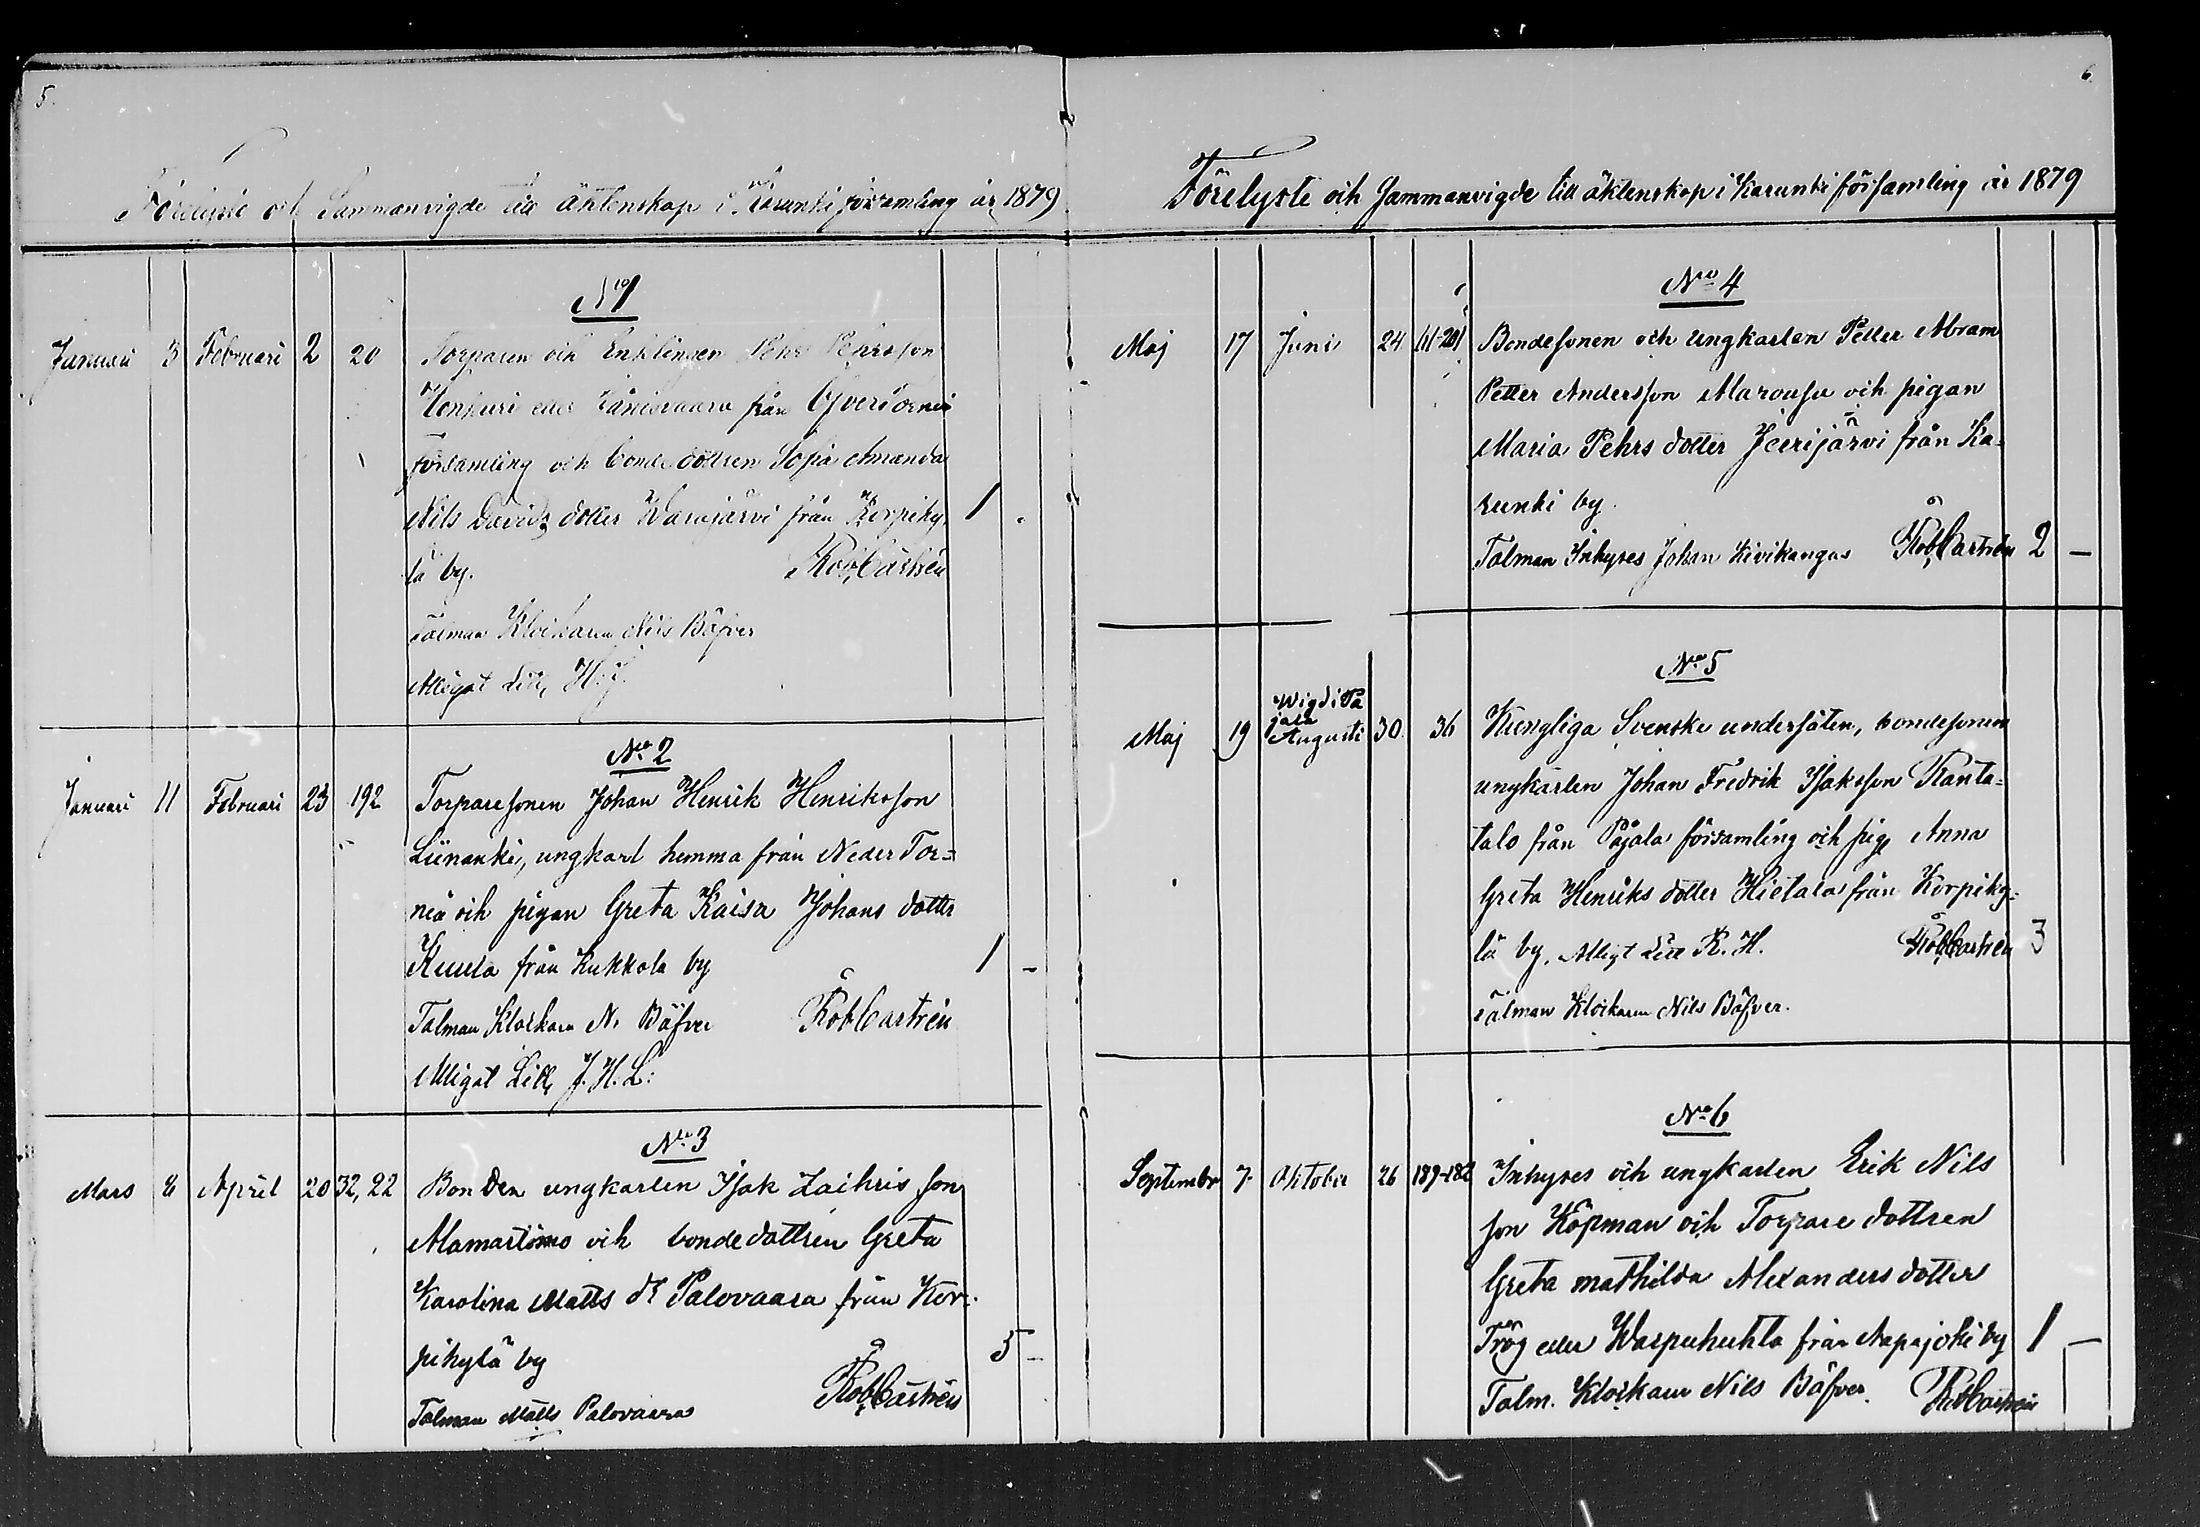 5.
Förelyste och Sammanvigde till äktenskap i Karunki församling år 1879
No 1
Januari 3 Februari 2 20 Torparen och Enklingen Pehr Pehrsson
eller från Öfvertorneå
församling och bonde dottren Sofia Amanda
Nils Davids dotter Warajärvi från Korpiky- 1
lä by. RobCastrén
Talman Klockaren Nils Bäfver
Alligat Litt, H. J.
No 2
Januari 11 Februari 23 192 Torparesonen Johan Henrik Henriksson
Liinanki, ungkarl hemma från Neder Tor=
neå och pigan Greta Kaisa Johans dotter
Kuula från Kukkola by 1 -
Talman Klockarn N. Bäfver RobCastrén
Alligat Litt, J. H. L:
No 3
Mars 8 April 20 32, 22 Bonden ungkarlen Isak Zachris son
Mamartömo och bondedottren Greta
Karolina Matts dr Palovaara från Kor-
pikylä by 5 -
Talman Matts Palovaara RobCastrén
6.
Förelyste och Sammanvigde till äktenskap i Karunki församling år 1879
No 4
Maj 17 Juni 24 Bondesonen och ungkarlen Petter Abram
Petter Andersson Marousu och pigan
Maria Pehrs dotter Jeerijärvi från Ka-
runki by.
Talman Inhyses Johan Kivikangas RobCastrén 2 -
No 5
Wigd i Pa
jala
Maj 19 Augusti 30. 36 Kungliga Svenske undersåten, bondesonen
ungkarlen Johan Fredrik Isaksson Ranta=
talo från Pajala församling och pig. Anna
Greta Henriks dotter Hietala från Korpiky=
lä by. Alligt Litt R. H. RobCastrén 3
Talman Klockarn Nils Bäfver.
No 6
September 7. Oktober 26 189-182 Inhyses och ungkarlen Erik Nils
son Köpman och Torpare dottren
Greta mathilda Alexanders dotter
Trög eller Waspuhuhta från Aapajoki by 1 -
Talm. Klockarn Nils Bäfver. RobCastrén